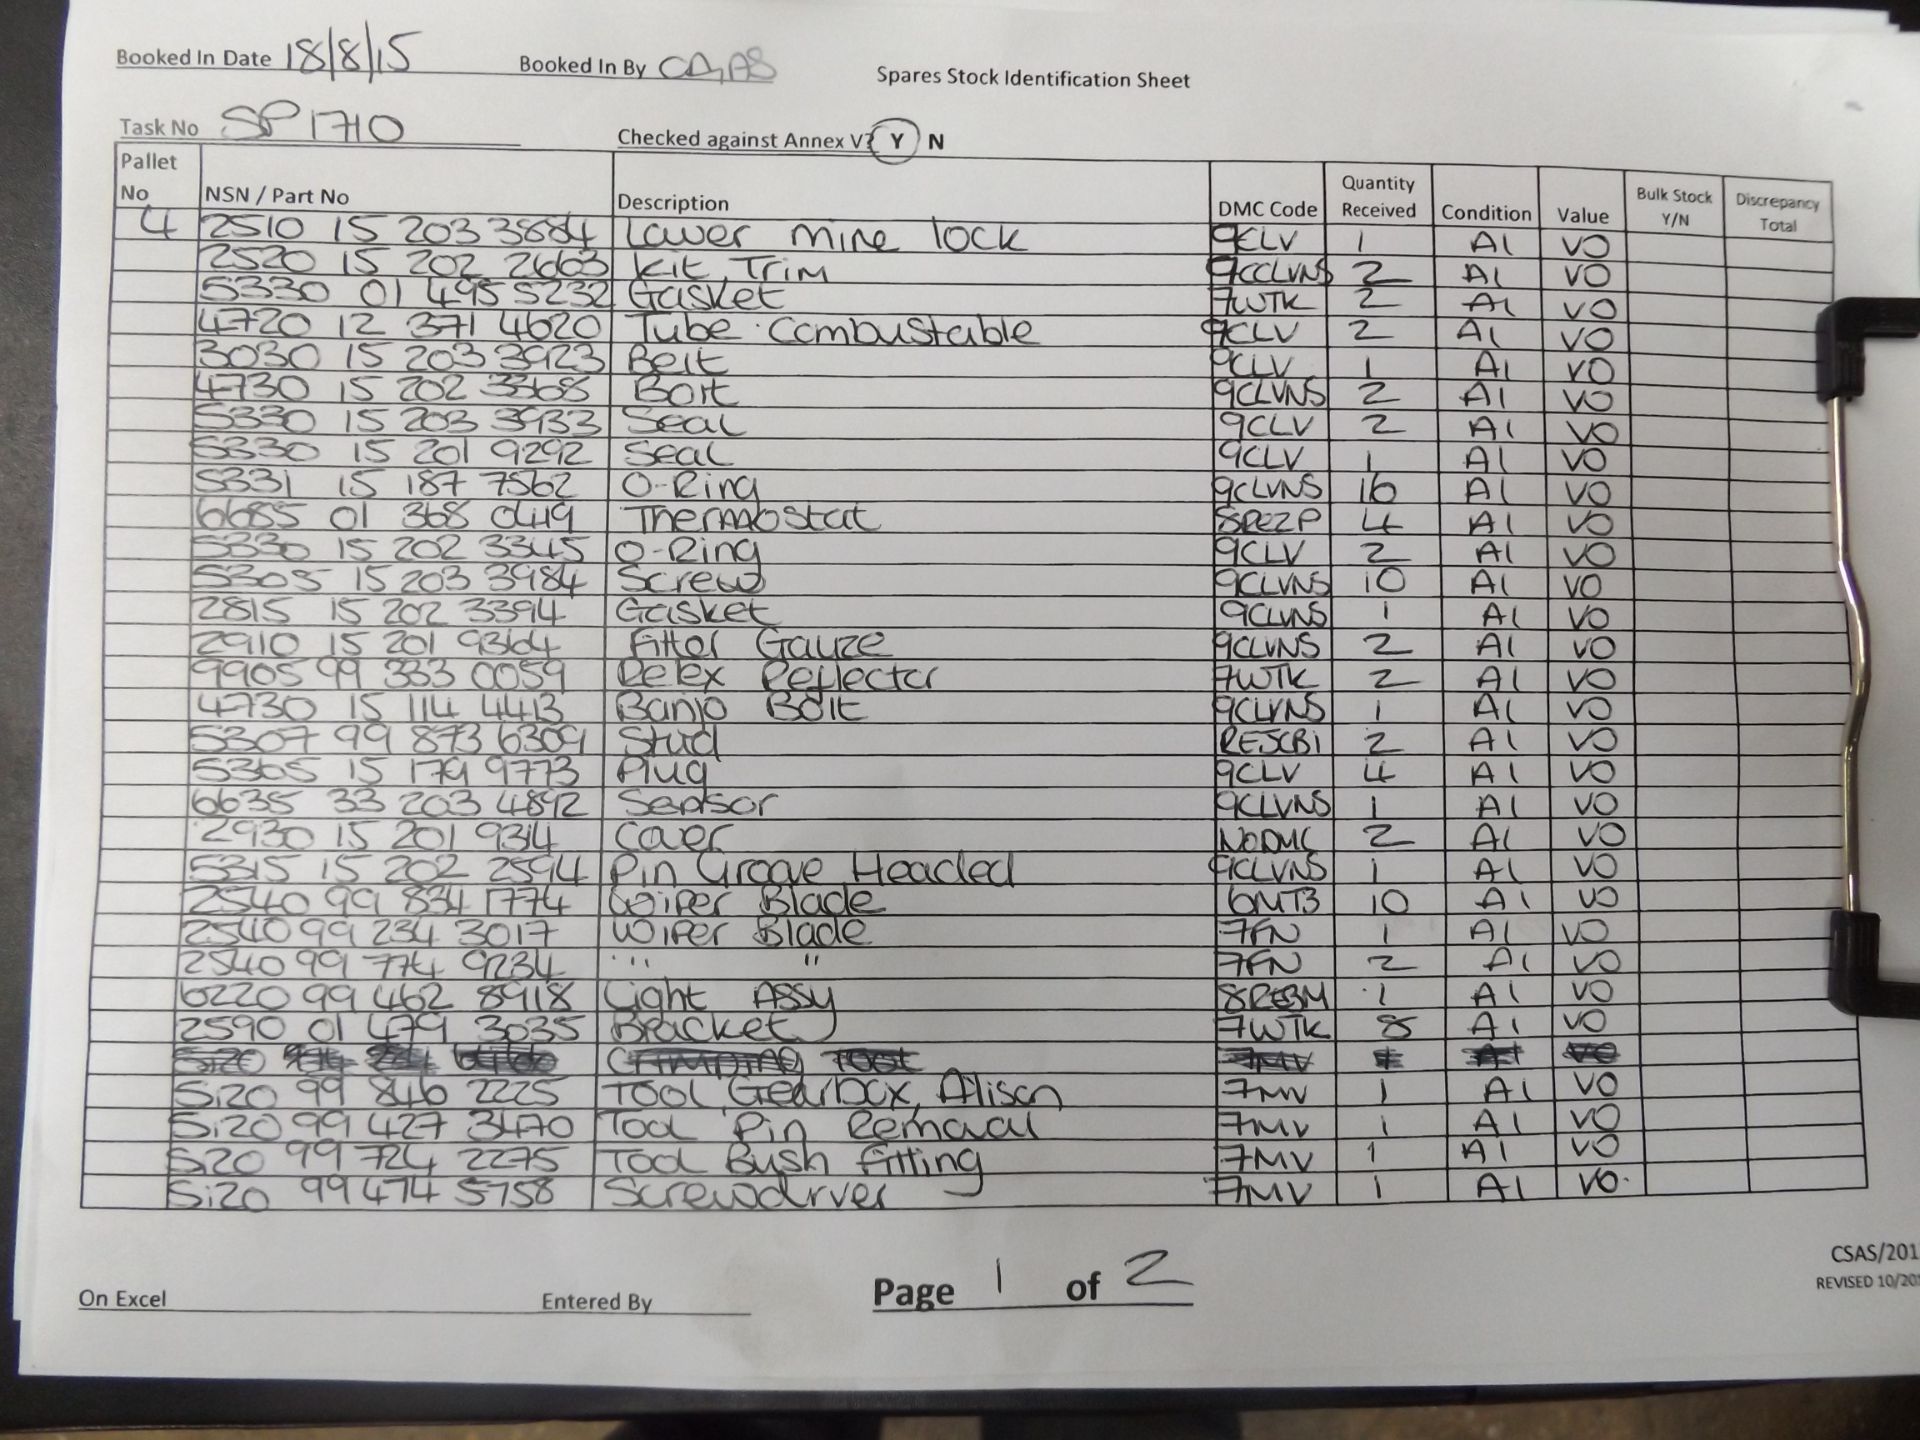 Booked In Date 18/8/15 Booked In By Spares Stock Identification Sheet
Task No SP1710 Checked against Annex V? Y N
Pallet No NSN / Part No Description DMC Code Quantity Received Condition Value Bulk Stock Y/N Discrepancy Total
4 2510 15 203 3884 Lower mine lock 9CLV 1 A1 VO
2520 15 202 2663 Kit, Trim 9CCLVNS 2 A1 VO
5330 01 495 5232 Gasket 7WTK 2 A1 VO
4720 12 371 4620 Tube Combustable 9CLV 2 A1 VO
3030 15 203 3923 Belt 9CLV 1 A1 VO
4730 15 202 3368 Bolt 9CLVNS 2 A1 VO
5330 15 203 3933 Seal 9CLV 2 A1 VO
5330 15 201 9292 Seal 9CLV 1 A1 VO
5331 15 187 7562 O-Ring 9CLVNS 16 A1 VO
6685 01 368 0419 Thermostat 8REZP 4 A1 VO
5330 15 202 3345 O-Ring 9CLV 2 A1 VO
5305 15 203 3984 Screw 9CLVNS 10 A1 VO
2815 15 202 3394 Gasket 9CLVNS 1 A1 VO
2910 15 201 9364 Filter Gauze 9CLVNS 2 A1 VO
9905 99 333 0059 Relex Reflector 7WTK 2 A1 VO
4730 15 114 4413 Banjo Bolt 9CLVNS 1 A1 VO
5307 99 873 6309 Stud REJCB1 2 A1 VO
5365 15 179 9773 Plug 9CLV 4 A1 VO
6635 33 203 4892 Sensor 9CLVNS 1 A1 VO
2930 15 201 9314 Cover NODMC 2 A1 VO
5315 15 202 2594 Pin Groove Headed 9CLVNS 1 A1 VO
2540 99 834 1774 Wiper Blade 6MT3 10 A1 VO
2540 99 234 3017 Wiper Blade 7FN 1 A1 VO
2540 99 774 9234 " " 7FN 2 A1 VO
6220 99 462 8918 Light Assy 8REBM 1 A1 VO
2590 01 479 3035 Bracket 7WTK 8 A1 VO
5120 99 846 2225 Tool, Gearbox, Alison 7MV 1 A1 VO
5120 99 427 3470 Tool Pin Removal 7MV 1 A1 VO
5120 99 724 2275 Tool Bush fitting 7MV 1 A1 VO
5120 99 474 5758 Screwdrver 7MV 1 A1 VO
On Excel Entered By Page 1 of 2
CSAS/201
REVISED 10/20